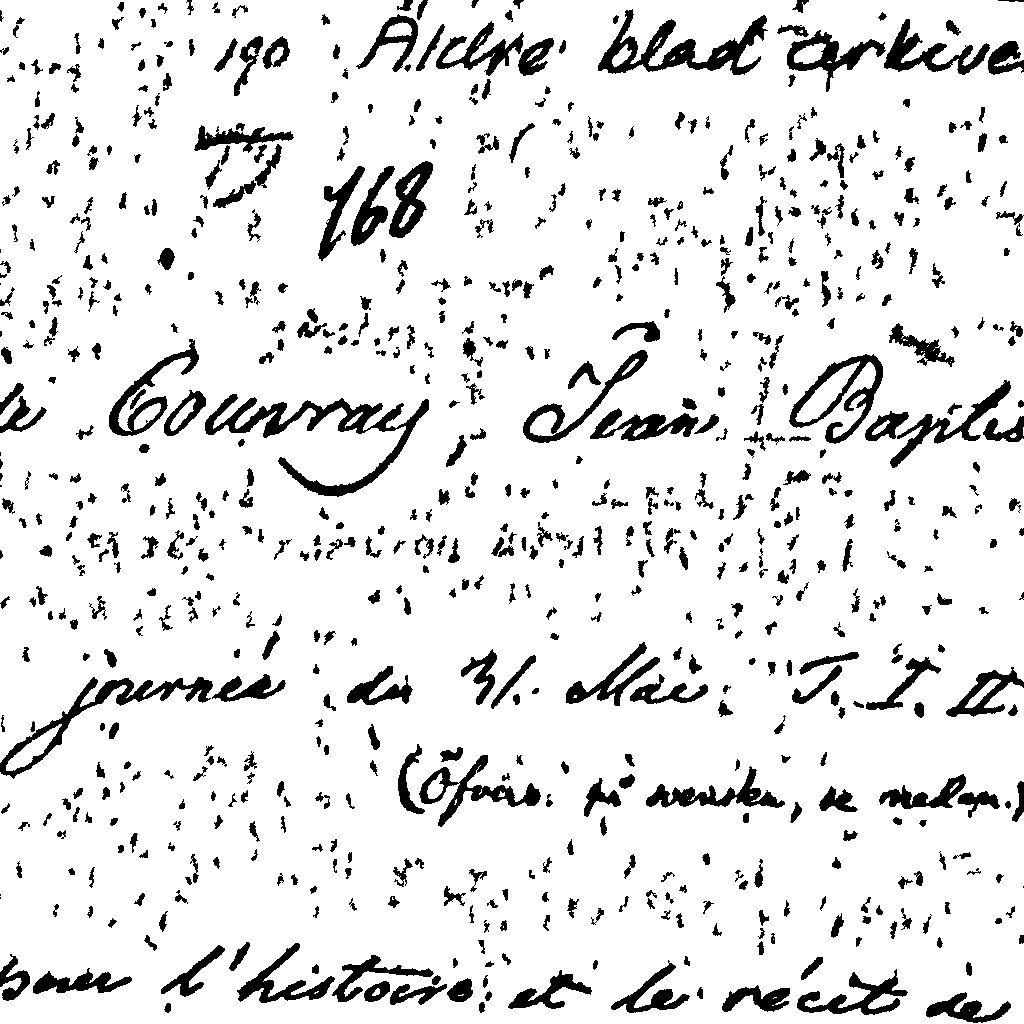 190 Äldre blad arkive
168
de Couvray, Jean Baptis
journée du 31. Mai T. I. II.
(Öfvers. på svenska, se nedan.)
pour l'histoire et le récit de